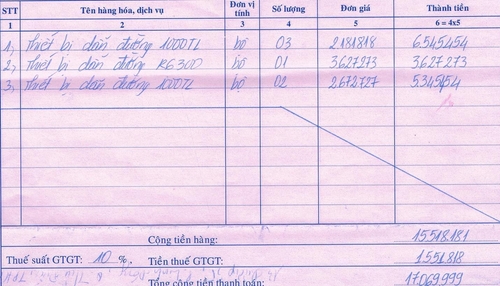 STT Tên hàng hóa, dịch vụ Đơn vị tính Số lượng Đơn giá Thành tiền
1 2 3 4 5 6 = 4x5
1, Thiết bị dẫn đường 1000TL bộ 03 2181818 6.545.454
2, Thiết bị dẫn đường RG300 bộ 01 3.627273 3.627.273
3, Thiết bị dẫn đường 1000TL bộ 02 2.672.727 5.345.454
Cộng tiền hàng: 15.518.181
Thuế suất GTGT: 10 %, Tiền thuế GTGT: 1.551.818
Tổng cộng tiền thanh toán: 17.069.999